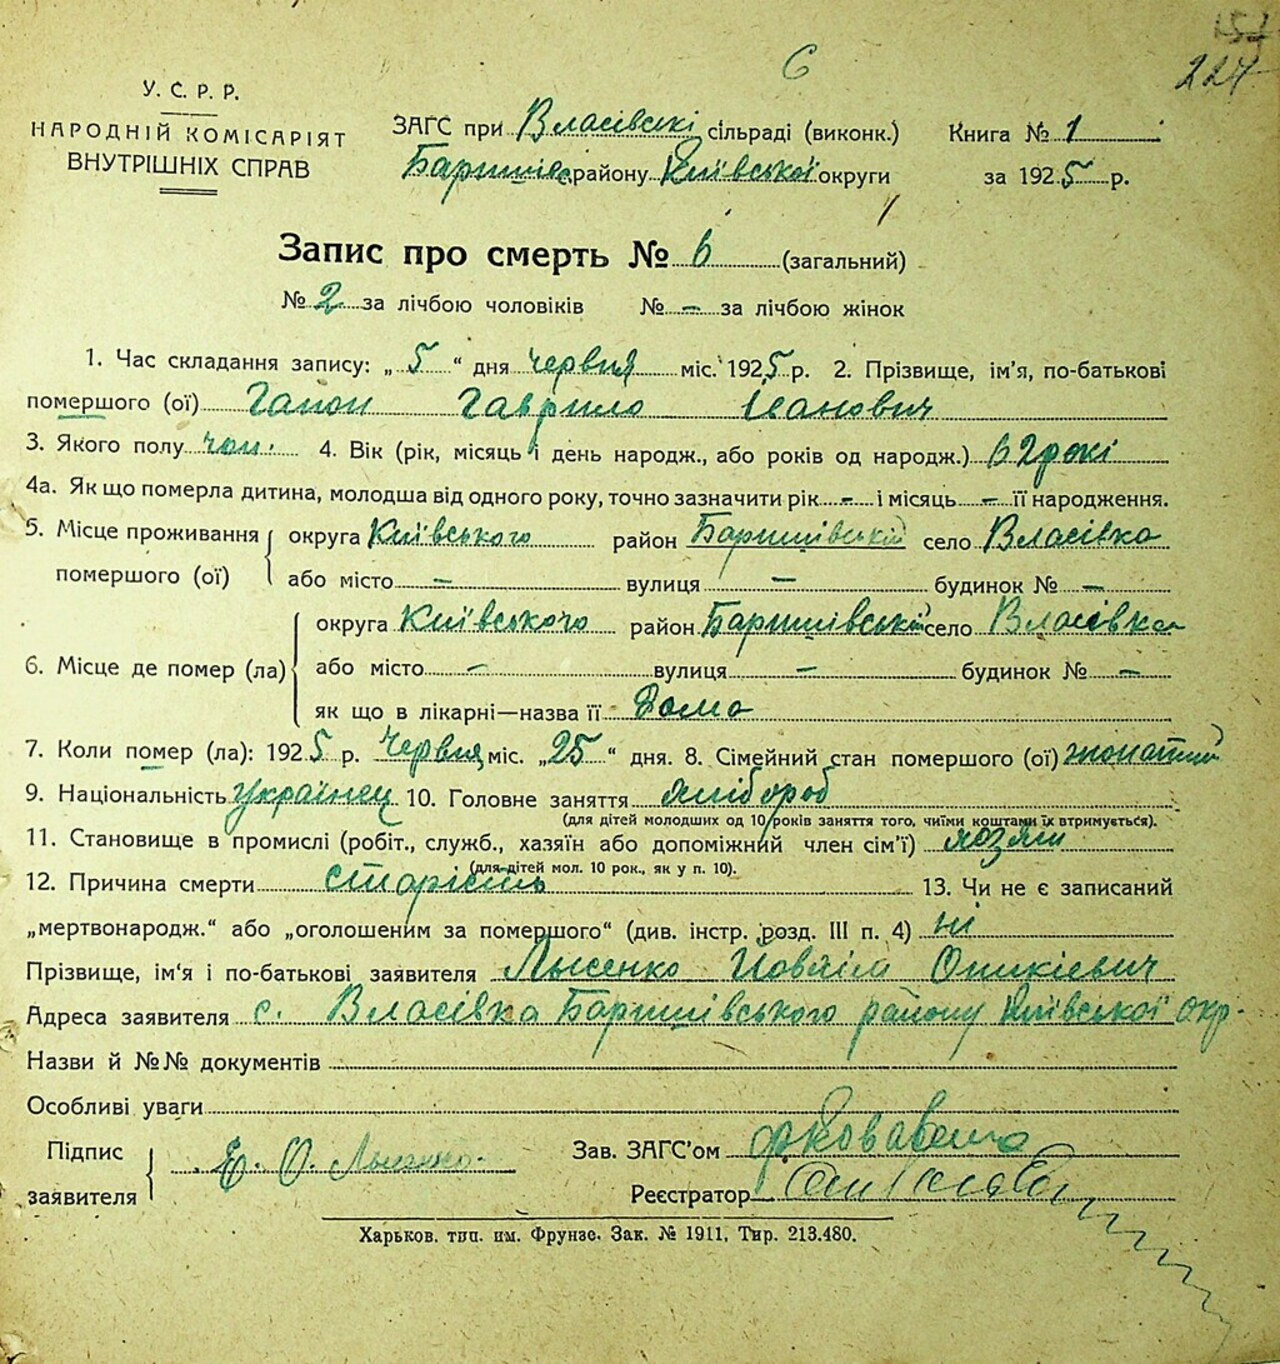 6
227
У. С. Р. Р.
НАРОДНІЙ КОМІСАРІЯТ
ВНУТРІШНІХ СПРАВ
ЗАГС при Власівські сільраді (виконк.) Книга № 1
Баришівс. району Київської округи за 1925 р.
Запис про смерть № 6 (загальний)
№ 2 за лічбою чоловіків № – за лічбою жінок
1. Час складання запису: „ 5 “ дня червня міс. 1925 р. 2. Прізвище, ім'я, по-батькові
помершого (ої) Гапон Гаврило Іванович
3. Якого полу чол. 4. Вік (рік, місяць і день народж., або років од народж.) 62 рокі
4а. Як що померла дитина, молодша від одного року, точно зазначити рік – і місяць – її народження.
5. Місце проживання округа Київського район Баришівській село Власівка
помершого (ої) або місто – вулиця – будинок № –
округа Київського район Баришівській село Власівка
6. Місце де помер (ла) або місто – вулиця – будинок № –
як що в лікарні—назва її Дома
7. Коли помер (ла): 1925 р. Червня міс. „25“ дня. 8. Сімейний стан помершого (ої) жонатий
9. Національність Українец 10. Головне заняття хлібороб
(для дітей молодших од 10 років заняття того, чиїми коштами їх втримується).
11. Становище в промислі (робіт., служб., хазяїн або допоміжний член сім'ї) хозяін
(для дітей мол. 10 рок., як у п. 10).
12. Причина смерти старість 13. Чи не є записаний
„мертвонародж.“ або „оголошеним за помершого“ (див. інстр. розд. III п. 4) ні
Прізвище, ім'я і по-батькові заявителя Лысенко
Адреса заявителя с. Власівка Баришівського району Київської окр.
Назви й №№ документів
Особливі уваги
Підпис Зав. ЗАГС'ом
заявителя Е. О. Лысенко
Реєстратор
Харьков. тип. им. Фрунзе. Зак. № 1911, Тир. 213.480.